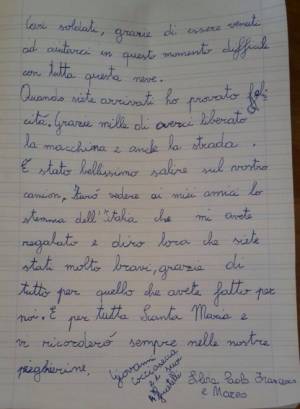 Cari soldati, grazie di essere venuti
ad aiutarci in questo momento difficile
con tutta questa neve.
Quando siete arrivati ho provato feli
cità. Grazie mille di averci liberato
la macchina e anche la strada.
È stato bellissimo salire sul vostro
camion, farò vedere ai miei amici lo
stemma dell'Italia che mi avete
regalato e dirò loro che siete
stati molto bravi, grazie di
tutto per quello che avete fatto per
noi. E per tutta Santa Maria e
vi ricorderò sempre nelle nostre
preghierine.
Giovanni
e i suoi
fratelli
Paolo Francesco
e Marco